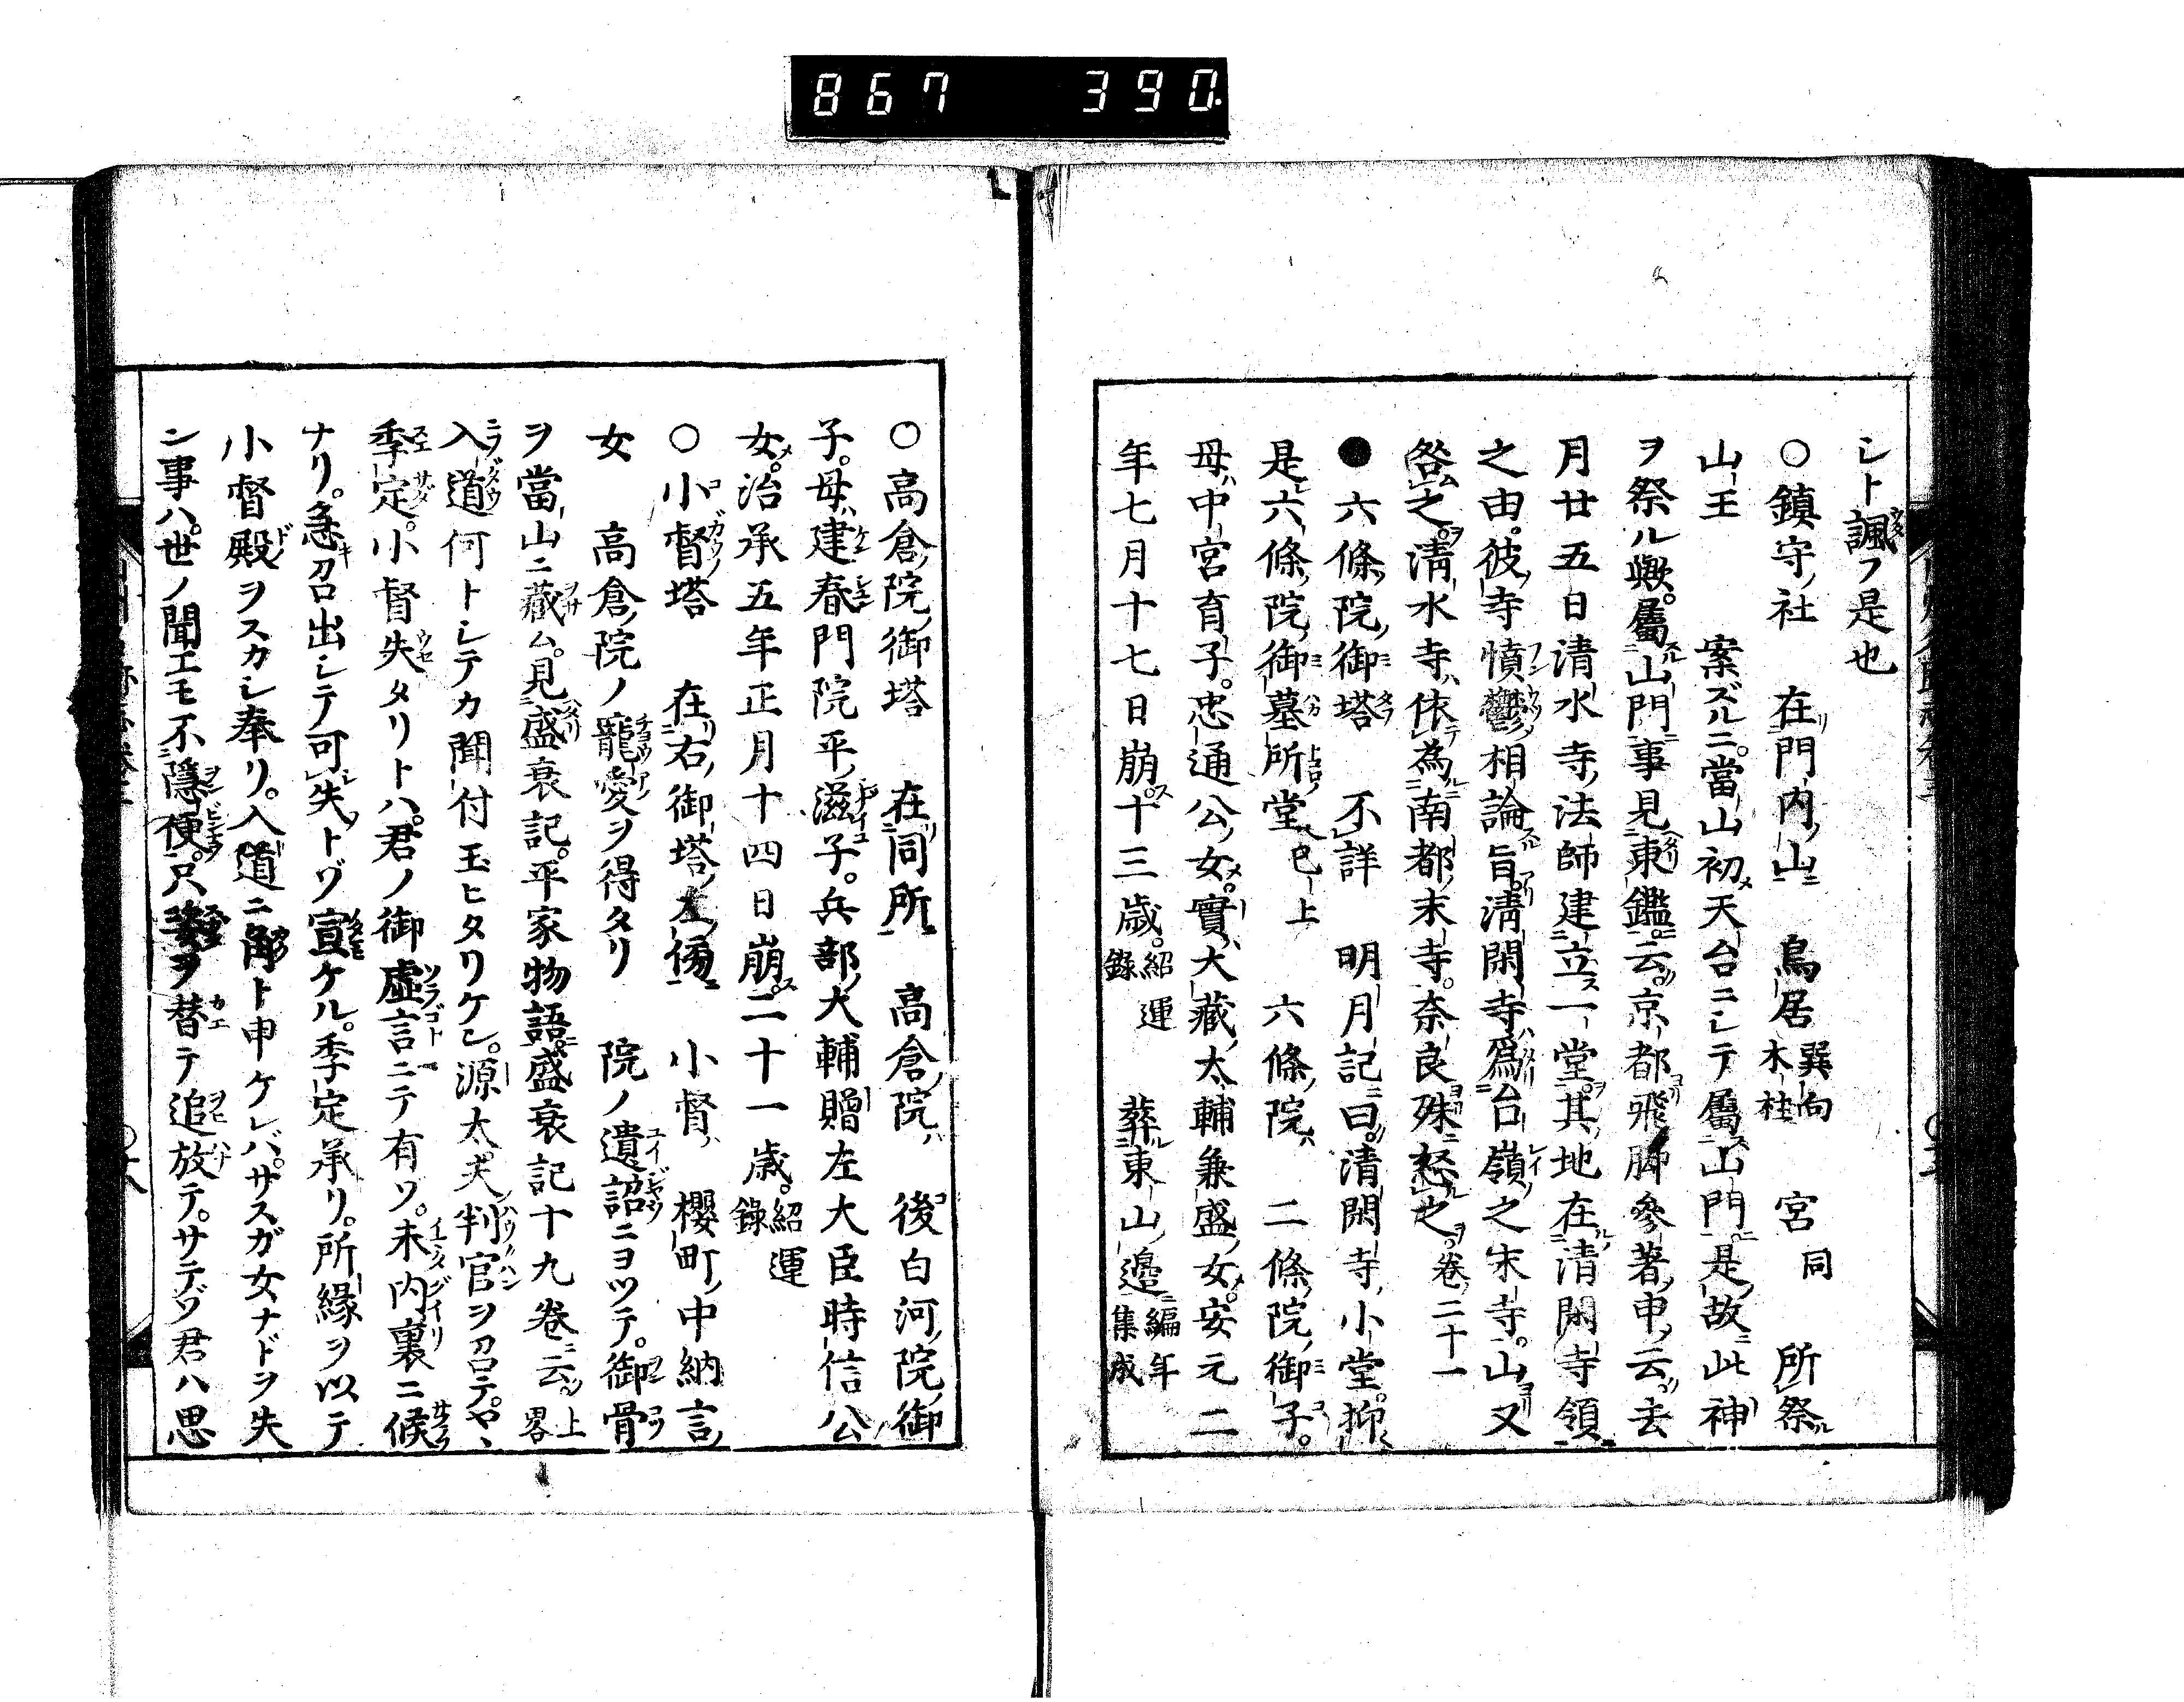 867 390
シト諷フ是也
○鎮守社 在門内山 鳥居 巽向木柱 宮 同 所祭
山王 案ズルニ當山初メ天台ニシテ屬山門是故此神
ヲ祭ル歟屬山門事見東鑑云京都飛脚參著申云去
月廿五日清水寺法師建立一堂其地在清閑寺領
之由彼寺憤鬱相論旨清閑寺為台嶺之末寺山又
咎之清水寺依為南都末寺奈良殊怒之 卷二十一
●六條院御塔 不詳 明月記曰清閑寺小堂抑
是六條院御墓所堂 已上 六條院ハ 二條院御子
母ハ中宮育子忠通公女實ハ大藏大輔兼盛女安元二
年七月十七日崩十三歳 紹運錄 葬東山邊 編年集成
○高倉院御塔 在同所 高倉院ハ 後白河院御
子母ハ建春門院平滋子兵部大輔贈左大臣時信公
女治承五年正月十四日崩二十一歳 紹運錄
○小督塔 在右御塔左傍 小督ハ 櫻町中納言
女 高倉院ノ寵愛ヲ得タリ 院ノ遺詔ニヨツテ御骨
ヲ當山ニ藏ム見盛衰記平家物語盛衰記十九卷云 上畧
入道何トシテカ聞付玉ヒタリケン源太夫判官ヲ召テヤヽ
季定小督失タリトハ君ノ御虚言ニテ有ソ未内裏ニ候
ナリ急召出シテ可失トヅ宣ケル季定承リ所縁ヲ以テ
小督殿ヲスカシ奉リ入道ニ角ト申ケレバサスガ女ナドヲ失
ン事ハ世ノ聞エモ不隱便只姿ヲ替テ追放テサテゾ君ハ思